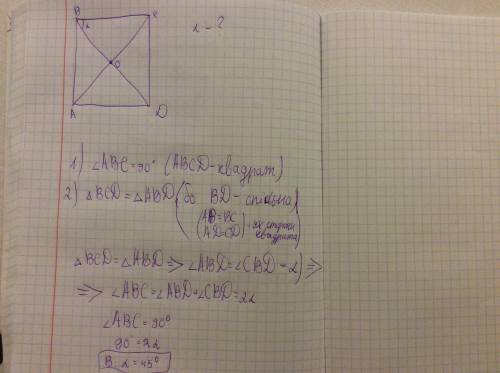 B C α - ?
α
O
A D
1) ∠ABC = 90° (ABCD - квадрат)
2) △BCD = △ABD (бо BD - спільна)
(AB = BC
AD = CD) - як сторони квадрата
△BCD = △ABD => ∠ABD = ∠CBD - α) =>
=> ∠ABC = ∠ABD + ∠CBD = 2α
∠ABC = 90°
90° = 2α
В. α = 45°